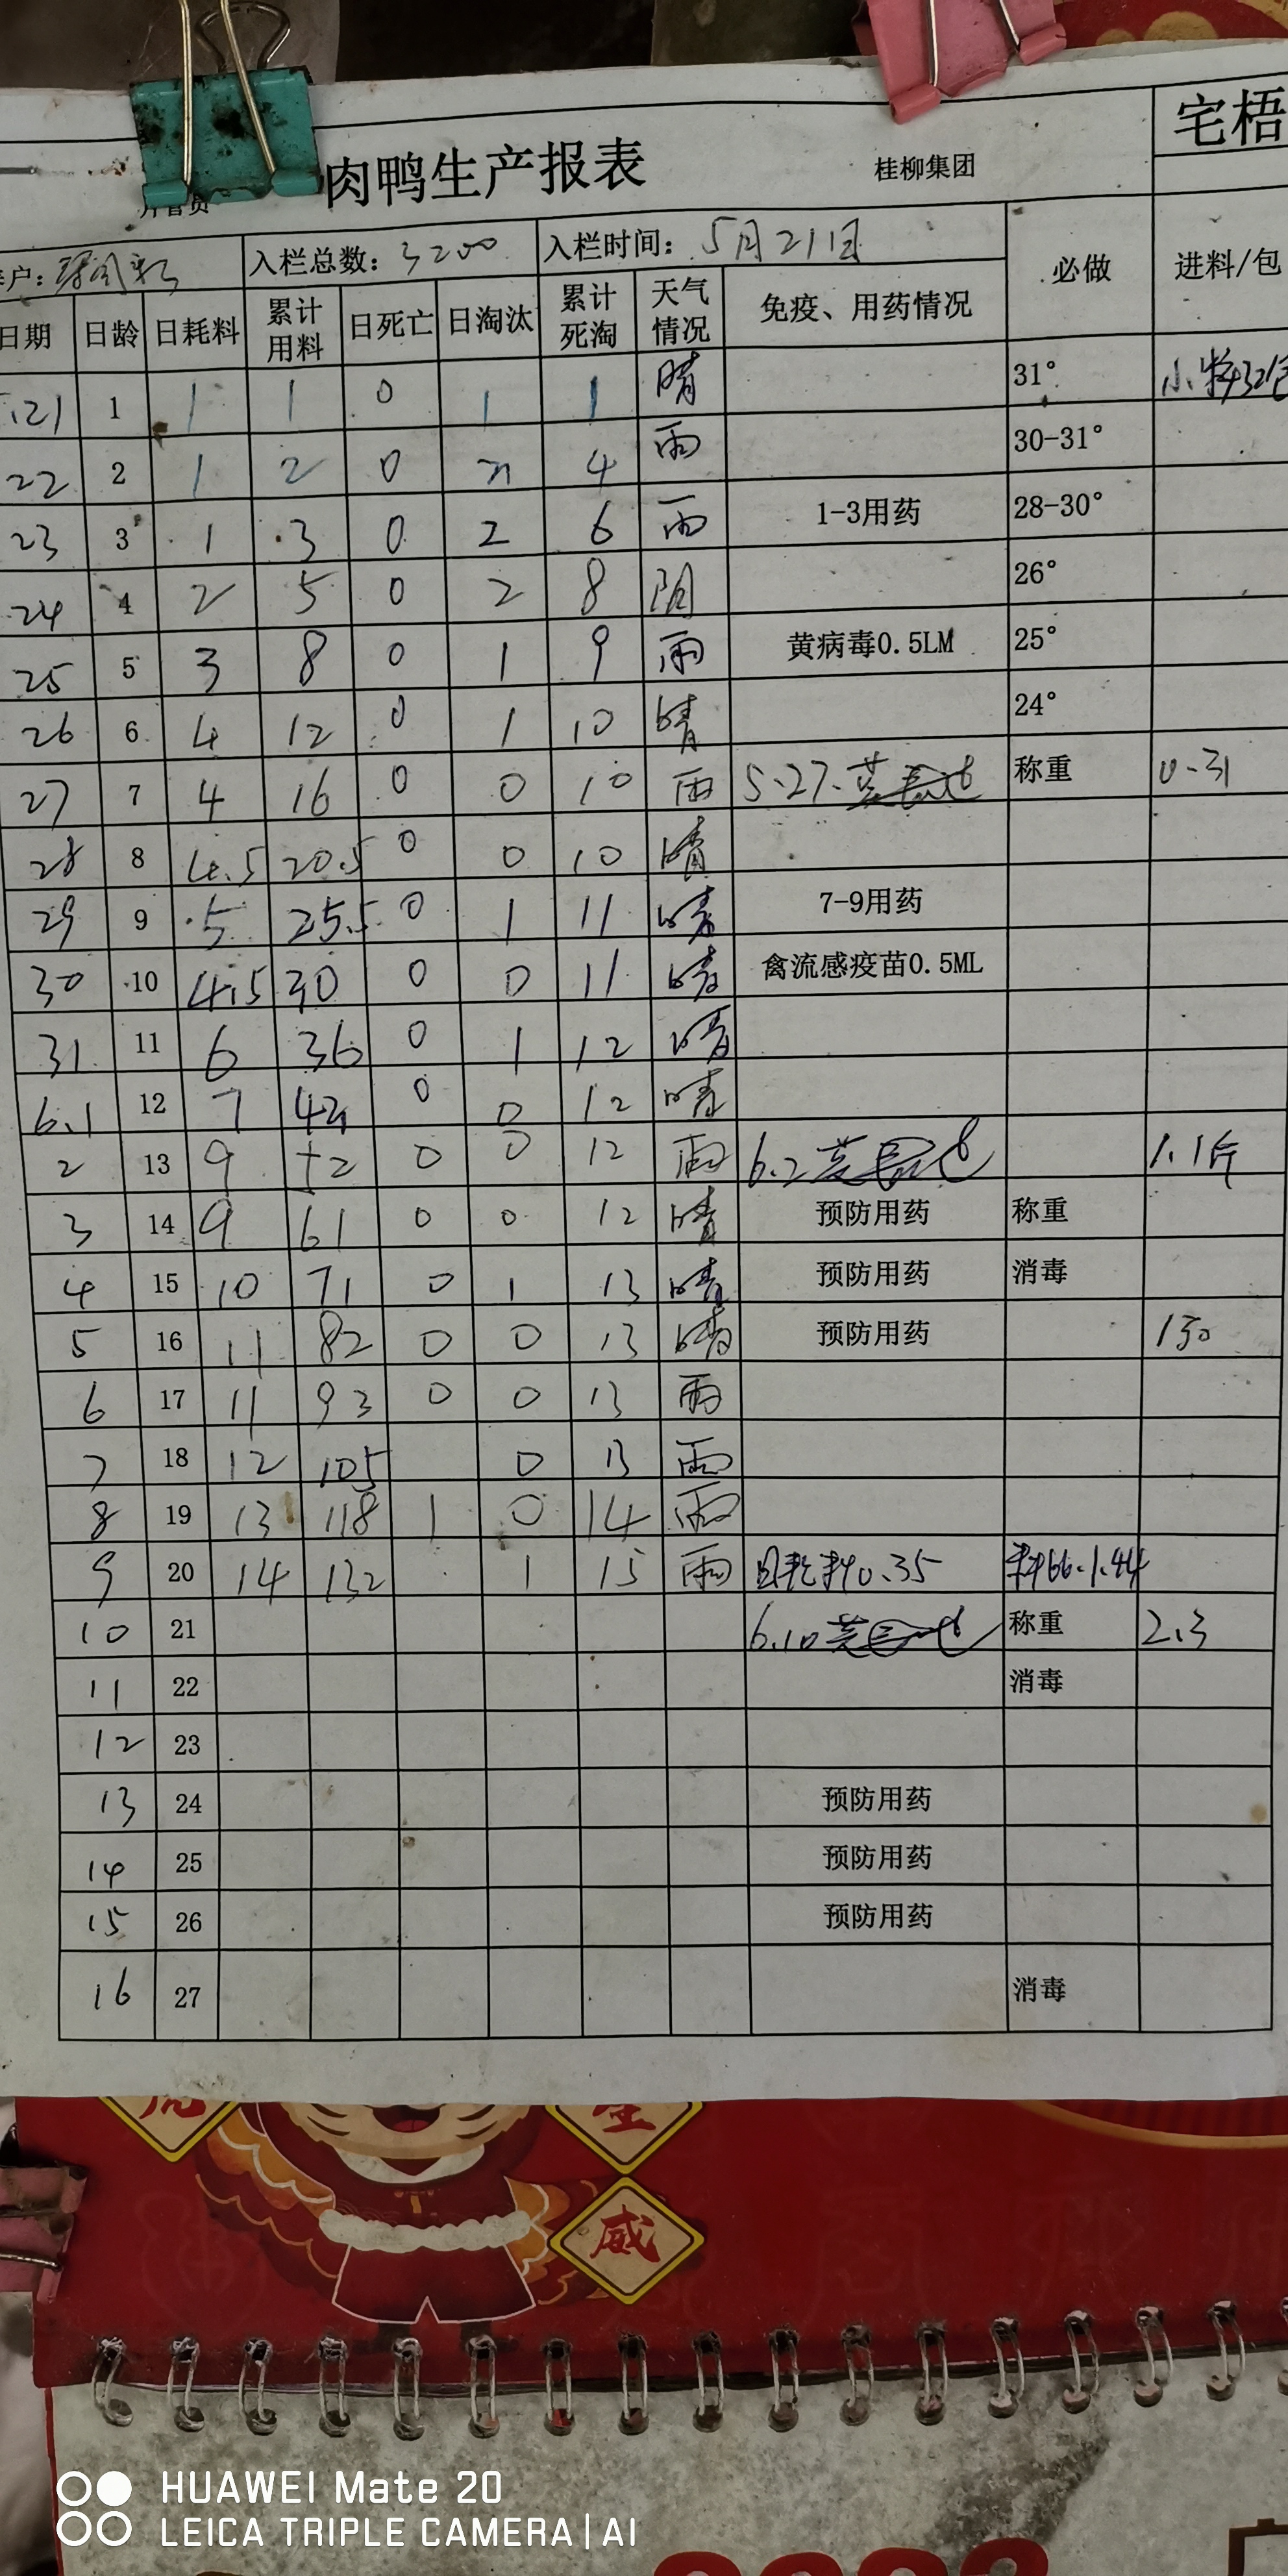 宅梧
肉鸭生产报表 桂柳集团
户: 入栏总数: 3200 入栏时间: 5月21日 必做 进料/包
日期 日龄 日耗料 累计用料 日死亡 日淘汰 累计死淘 天气情况 免疫、用药情况
21 1 1 1 0 1 1 晴 31° 小料32包
22 2 1 2 0 4 雨 30-31°
23 3 1 3 0 2 6 雨 1-3用药 28-30°
24 4 2 5 0 2 8 阴 26°
25 5 3 8 0 1 9 雨 黄病毒0.5LM 25°
26 6 4 12 0 1 10 晴 24°
27 7 4 16 0 0 10 雨 5.27. 称重 0.31
28 8 4.5 20.5 0 0 10 晴
29 9 5 25.5 0 1 11 晴 7-9用药
30 10 4.5 30 0 0 11 晴 禽流感疫苗0.5ML
31 11 6 36 0 1 12 晴
6.1 12 7 43 0 0 12 晴
2 13 9 52 0 0 12 雨 6.2 1.1斤
3 14 9 61 0 0 12 晴 预防用药 称重
4 15 10 71 0 1 13 晴 预防用药 消毒
5 16 11 82 0 0 13 晴 预防用药 150
6 17 11 93 0 0 13 雨
7 18 12 105 0 13 雨
8 19 13 118 1 0 14 雨
9 20 14 132 1 15 雨 日耗料0.35 料66.1.44
10 21 6.10 称重 2.3
11 22 消毒
12 23
13 24 预防用药
14 25 预防用药
15 26 预防用药
16 27 消毒
威
HUAWEI Mate 20
LEICA TRIPLE CAMERA | AI